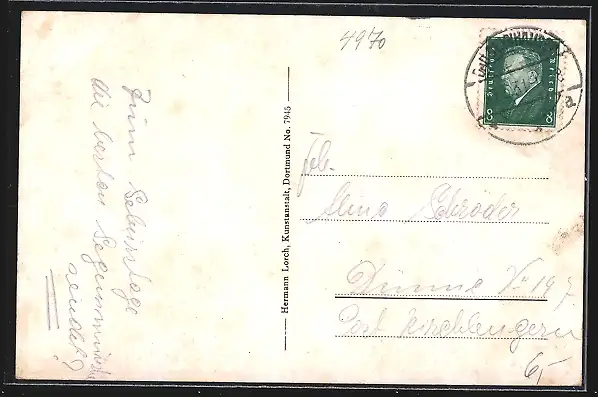 4970
Zum Geburtstage
die besten Segenswünsche
sendet
Hermann Lorch, Kunstanstalt, Dortmund No. 7945
Deutsches Reich
8 8
Frl.
Mina Schröder
Dünne No 197
Post Kirchlengern
6,-